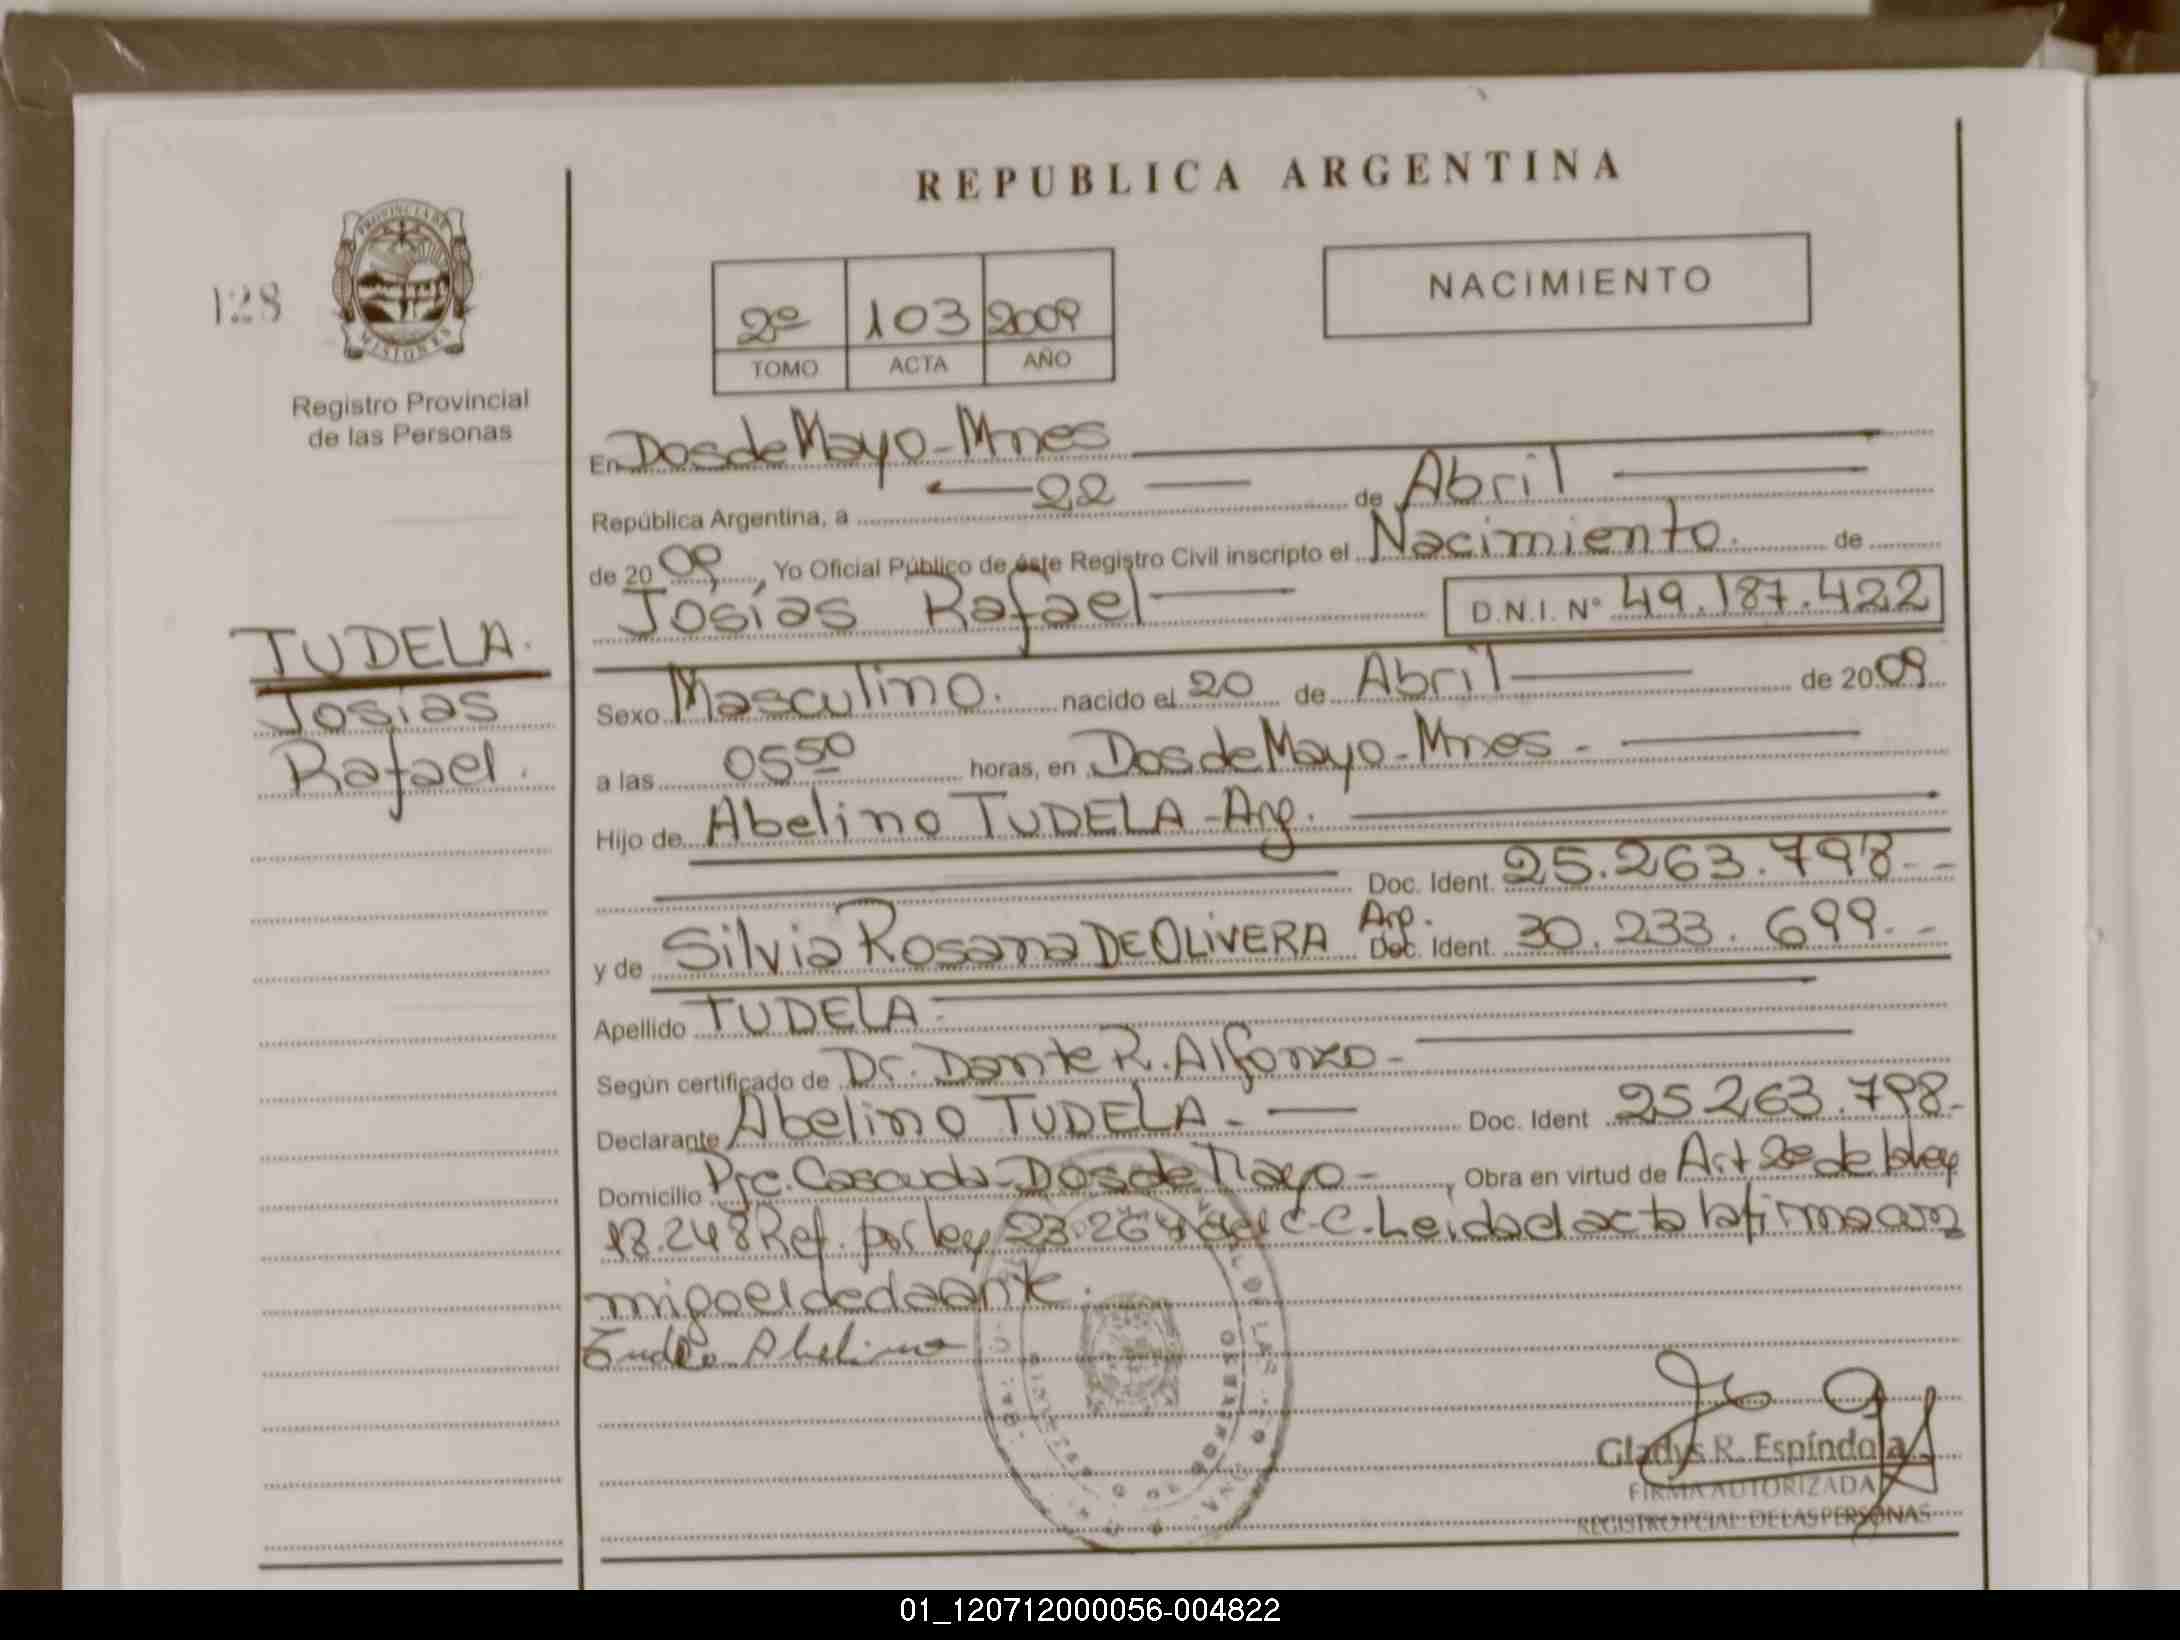 REPUBLICA ARGENTINA
128
PROVINCIA DE
MISIONES
Registro Provincial
de las Personas
2º 103 2009
TOMO ACTA AÑO
NACIMIENTO
En Dos de Mayo - Mnes
República Argentina, a 22 de Abril
de 2009, Yo Oficial Público de éste Registro Civil inscripto el Nacimiento. de
Josías Rafael D.N.I. Nº 49.187.422
TUDELA.
Josías
Rafael.
Sexo Masculino. nacido el 20 de Abril de 2009
a las 05 50 horas, en Dos de Mayo - Mnes -
Hijo de Abelino TUDELA - Arg.
Doc. Ident. 25.263.798 - -
y de Silvia Rosana DE OLIVERA Arg. Doc. Ident. 30.233.699 - -
Apellido TUDELA -
Según certificado de Dr. Dante R. Alfonzo -
Declarante Abelino TUDELA - Doc. Ident 25 263.798 -
Domicilio Dos de Mayo - , Obra en virtud de Art de la ley
18.248 Ref. por ley 23.264 del C.C. Leida el acta la firma con
migo el declarante.
Tudela Abelino
Gladys R. Espíndola
FIRMA AUTORIZADA
REGISTRO PCIAL. DE LAS PERSONAS
01_120712000056-004822